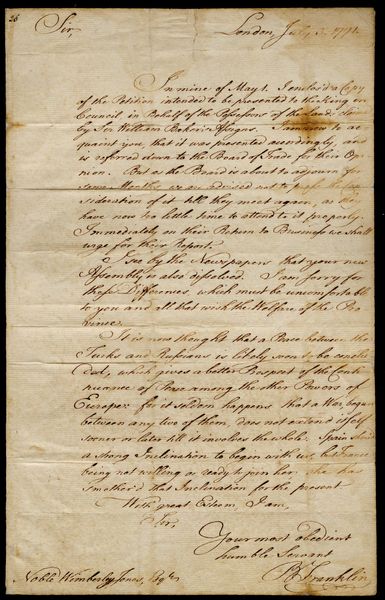 26
London, July 3. 1771.
Sir,
In mine of May 1. I enclos'd a Copy
of the Petition intended to be presented to the King in
Council in Behalf of the Possessors of the Lands claim'd
by Sir William Baker's Assigns. I am now to ac-
quaint you, that it was presented accordingly, and
is referred down to the Board of Trade for their Opi-
nion. But as the Board is about to adjourn for
some Months, we are advised not to press the Con-
sideration of it till they meet again, as they
have now too little time to attend to it properly.
Immediately on their Return to Business we shall
urge for their Report.
I see by the Newspapers that your new
Assembly is also dissolved. I am sorry for
these Differences, which must be uncomfortable
to you and all that wish the Welfare of the Pro-
vince.
It is now thought that a Peace between the
Turks and Russians is likely soon to be conclu-
ded, which gives a better Prospect of the Conti-
nuance of Peace among the other Powers of
Europe: for it seldom happens that a War begun
between any two of them does not extend itself
sooner or later till it involves the whole. Spain show'd
a strong Inclination to begin with us, but France
being not willing or ready to join her she has
smother'd that Inclination for the present
With great Esteem, I am,
Sir,
Your most obedient
humble Servant
B Franklin
Noble Wimberley Jones, Esqr